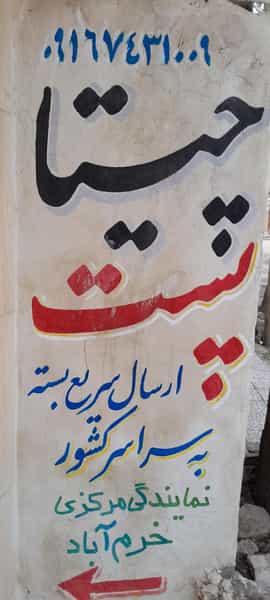 ۰۹۱۶۷۴۳۱۰۰۹
چیتا
پست
ارسال سریع بسته
به سراسر کشور
نمایندگی مرکزی
خرم آباد